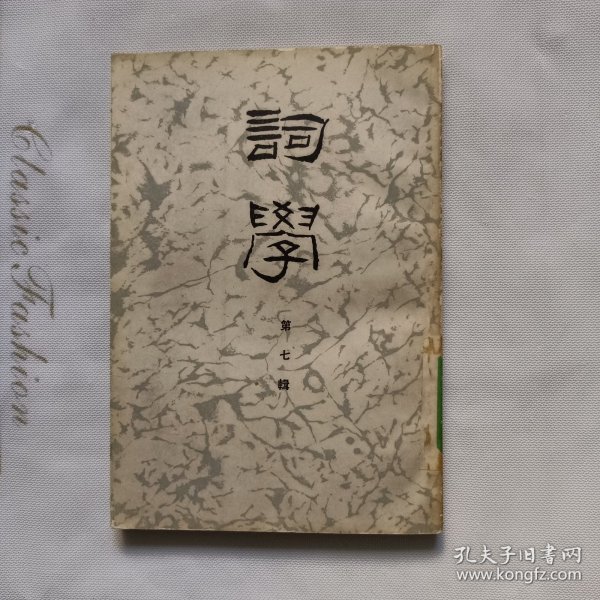 詞學
第七輯
Classic Fashion
孔夫子旧书网
www.kongfz.com